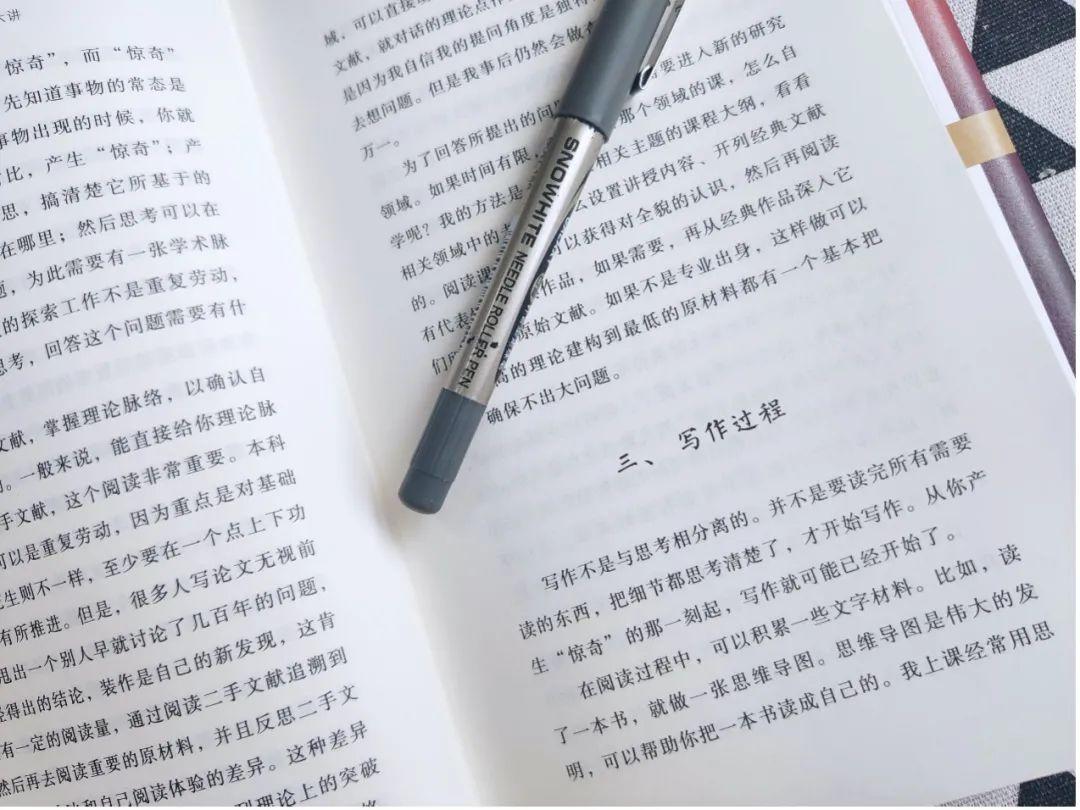 大讲
惊奇”，而“惊奇”
先知道事物的常态是
事物出现的时候，你就
比，产生“惊奇”；产
思，搞清楚它所基于的
在哪里；然后思考可以在
，为此需要有一张学术脉
的探索工作不是重复劳动，
思考，回答这个问题需要有什
文献，掌握理论脉络，以确认自
。一般来说，能直接给你理论脉
手文献，这个阅读非常重要。本科
可以是重复劳动，因为重点是对基础
生则不一样，至少要在一个点上下功
有所推进。但是，很多人写论文无视前
甩出一个别人早就讨论了几百年的问题，
得出的结论，装作是自己的新发现，这肯
有一定的阅读量，通过阅读二手文献追溯到
然后再去阅读重要的原材料，并且反思二手文
和自己阅读体验的差异。这种差异
理论上的突破
域，可以直接
文献，就对话的理论点作
是因为我自信我的提问角度是独特
去想问题。但是我事后仍然会做
万一。
为了回答所提出的问 需要进入新的研究
领域。如果时间有限， 那个领域的课，怎么自
学呢？我的方法是 相关主题的课程大纲，看看
相关领域中的 么设置讲授内容、开列经典文献
的。阅读课 以获得对全貌的认识，然后再阅读
有代表 作品，如果需要，再从经典作品深入它
们 原始文献。如果不是专业出身，这样做可以
高的理论建构到最低的原材料都有一个基本把
确保不出大问题。
三、写作过程
写作不是与思考相分离的。并不是要读完所有需要
读的东西，把细节都思考清楚了，才开始写作。从你产
生“惊奇”的那一刻起，写作就可能已经开始了。
在阅读过程中，可以积累一些文字材料。比如，读
了一本书，就做一张思维导图。思维导图是伟大的发
明，可以帮助你把一本书读成自己的。我上课经常用思
SNOWHITE NEEDLE ROLLER PEN